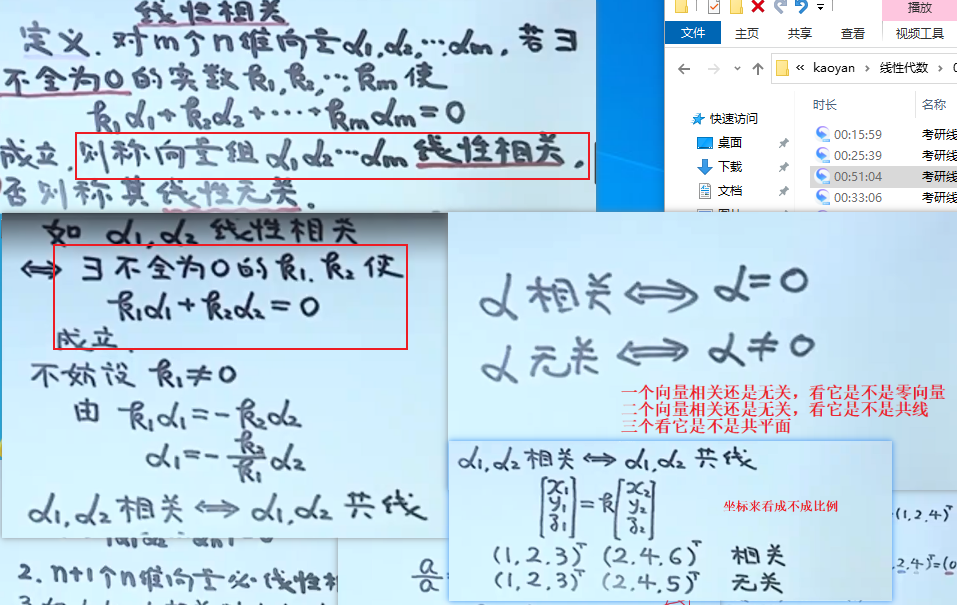 线性相关
定义.对m个n维向量α1,α2,…αm,若∃
不全为0的实数k1,k2,…,km使
k1α1+k2α2+……+kmαm=0
成立,则称向量组α1α2…αm线性相关,
否则称其线性无关.
文件 主页 共享 查看 视频工具
播放
« kaoyan › 线性代数 ›
时长 名称
快速访问
桌面
下载
文档
00:15:59 考研线
00:25:39 考研线
00:51:04 考研线
00:33:06 考研线
如 α1,α2线性相关
⟺ ∃不全为0的k1,k2使
k1α1+k2α2=0
成立.
不妨设 k1≠0
由 k1α1=-k2α2
α1=-k2/k1 α2
α1,α2相关⟺α1,α2共线
α相关⟺α=0
α无关⟺α≠0
一个向量相关还是无关，看它是不是零向量
二个向量相关还是无关，看它是不是共线
三个看它是不是共平面
α1,α2相关⟺α1,α2共线
[x1 y1 z1]=k[x2 y2 z2]
坐标来看成不成比例
(1,2,3)ᵀ (2,4,6)ᵀ 相关
(1,2,3)ᵀ (2,4,5)ᵀ 无关
2.n+1个n维向量必线性相
(1,2,4)ᵀ